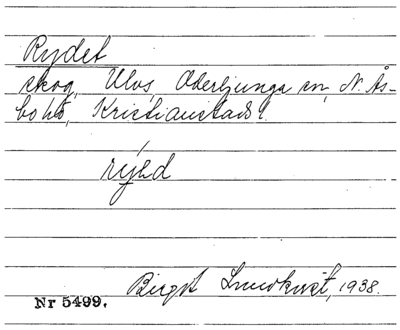 Rydet
skog, Ulvs, Oderljunga sn, N. Ås-
bo hd, Kristianstads l.
rýəd
Birgit Lundkvist, 1938.
Nr 5499.